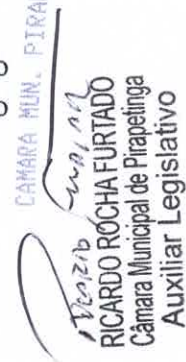 CAMARA MUN. PIRA
RICARDO ROCHA FURTADO
Câmara Municipal de Pirapetinga
Auxiliar Legislativo